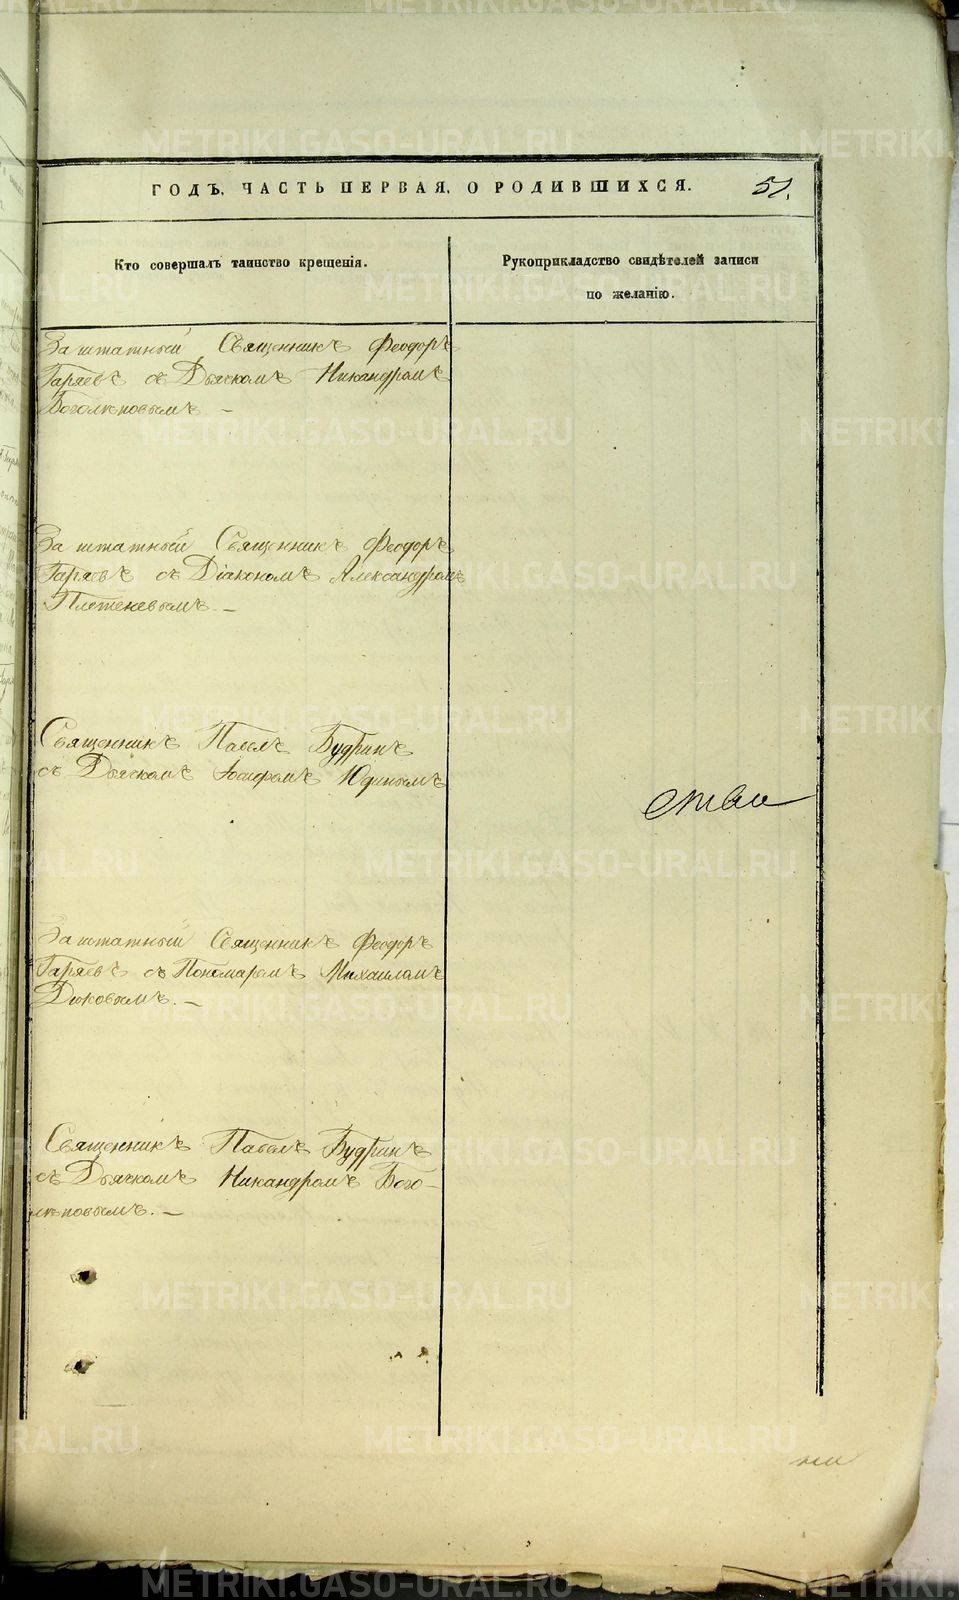 ГОДЪ, ЧАСТЬ ПЕРВАЯ, О РОДИВШИХСЯ. 51.
Кто совершалъ таинство крещенія.
Рукоприкладство свидѣтелей записи
по желанію.
Заштатный Священникъ Феодоръ
Гаряевъ съ Дьячкомъ Никандромъ
Боголѣповымъ –
Заштатный Священникъ Феодоръ
Гаряевъ съ Діакономъ Александромъ
Плетеневымъ. –
Священникъ Павелъ Будринъ
съ Дьячкомъ Іосифомъ Юдинымъ
Заштатный Священникъ Феодоръ
Гаряевъ съ Пономаремъ Михаиломъ
Дюковымъ. –
Священникъ Павелъ Будринъ
съ Дьячкомъ Никандромъ Бого-
лѣповымъ. –
METRIKI.GASO-URAL.RU